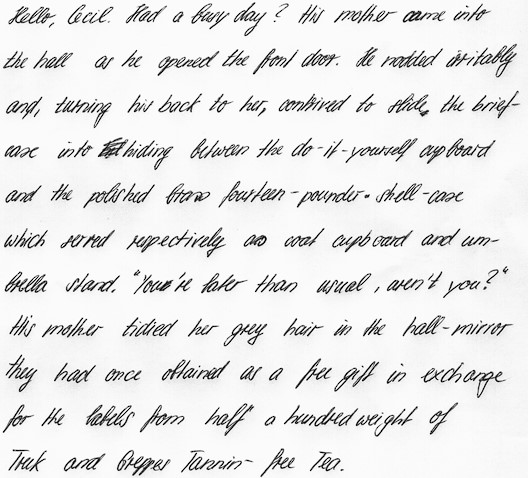 Hello, Cecil. Had a busy day? His mother came into
the hall as he opened the front door. He nodded irritably
and, turning his back to her, contrived to slide the brief-
case into hiding between the do-it-yourself cupboard
and the polished brass fourteen-pounder shell-case
which served respectively as coat cupboard and um-
brella stand. "You're later than usual, aren't you?"
His mother tidied her grey hair in the hall-mirror
they had once obtained as a free gift in exchange
for the labels from half a hundredweight of
and Tannin-free Tea.